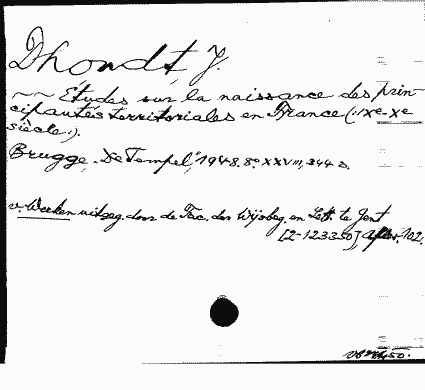 Dhondt, J.
~~ Études sur la naissance des prin-
cipautés territoriales en France (IXe-Xe
siècle).
Brugge, "De Tempel", 1948. 8° XXVIII, 344 s.
v. Werken uitgeg. door de Fac. der Wijsbeg. en Lett. te Gent
[2-123350], 102.